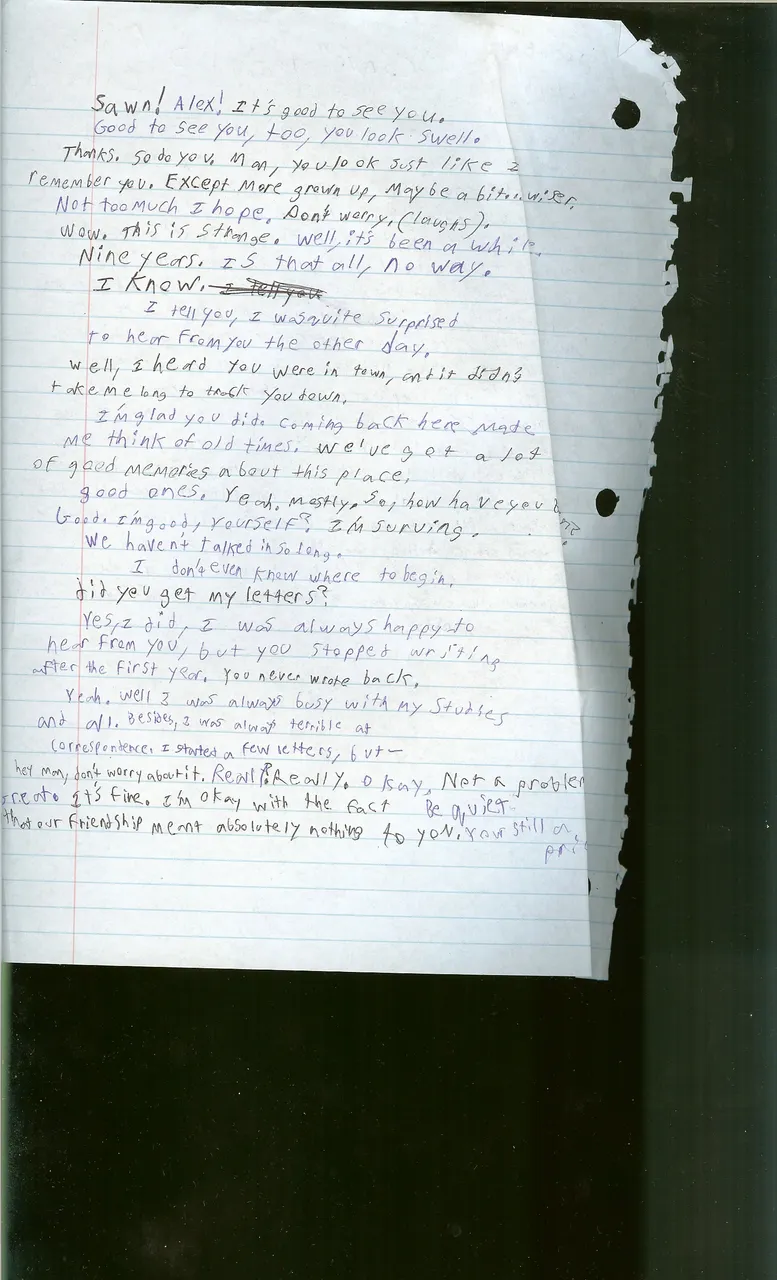 Sawn! Alex! It's good to see you.
Good to see you, too, you look swell.
Thanks. So do you. Man, you look Just like I
remember you. Except more grown up, Maybe a bit... wiser.
Not too much I hope. Don't worry. (laughs).
Wow. This is strange. Well, it's been a while.
Nine years. Is that all, no way.
I know. I tell you
I tell you, I was quite surprised
to hear from you the other day.
Well, I heard you were in town, and it didn't
take me long to track you down.
I'm glad you did. Coming back here made
me think of old times. We've got a lot
of good memories about this place.
good ones. Yeah. Mostly. So, how have you
Good. I'm good, yourself? I'm surving.
We haven't talked in so long.
I don't even know where to begin.
did you get my letters?
Yes, I did, I was always happy to
hear from you, but you stopped writing
after the first year. You never wrote back.
Yeah. Well I was always busy with my studies
and all. Besides, I was always terrible at
correspondence. I started a few letters, but—
hey man, don't worry about it. Really? Really. Okay. Not a problem
great. It's fine. I'm okay with the fact Be quiet.
that our friendship meant absolutely nothing to you. Your still a